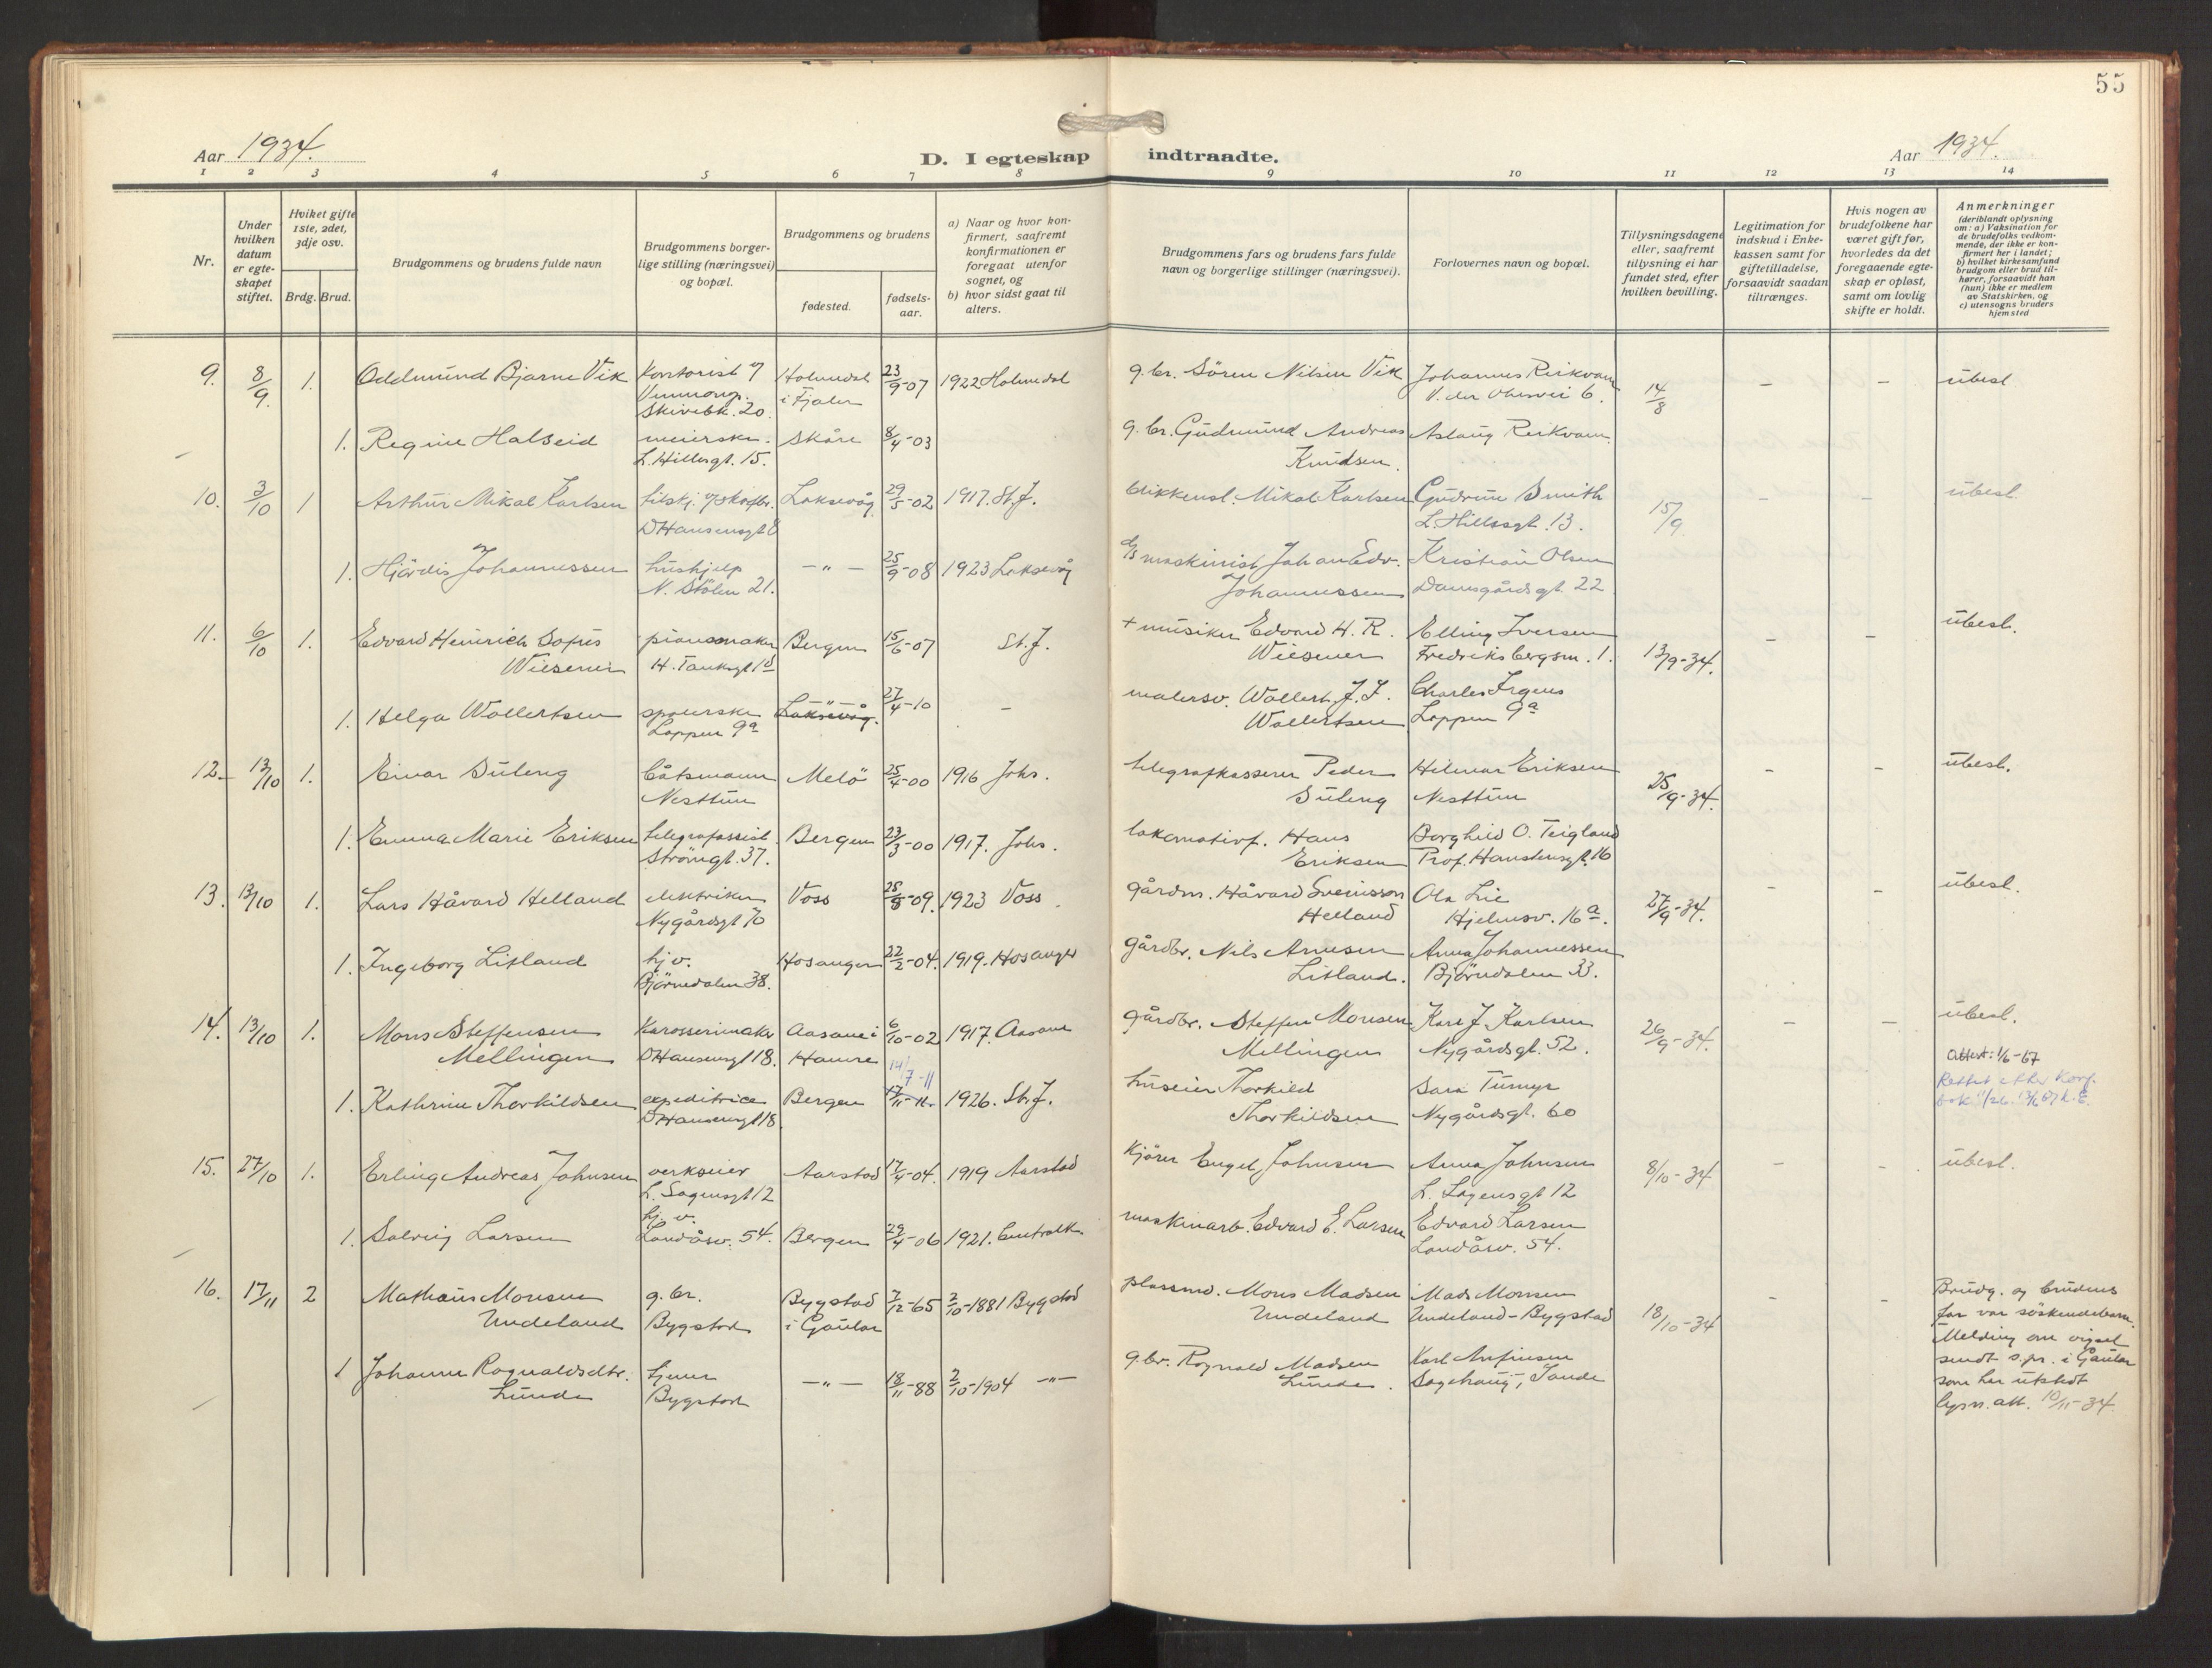 55
Aar 1934.
D. I egteskap indtraadte.
Aar 1934.
1 2 3 4 5 6 7 8 9 10 11 12 13 14
Nr.
Under hvilken datum er egteskapet stiftet.
Hviket gifte 1ste, 2det, 3dje osv.
Brdg. Brud.
Brudgommens og brudens fulde navn
Brudgommens borgerlige stilling (næringsvei) og bopæl.
Brudgommens og brudens
fødested.
fødselsaar.
a) Naar og hvor konfirmert, saafremt konfirmationen er foregaat utenfor sognet, og
b) hvor sidst gaat til alters.
Brudgommens fars og brudens fars fulde navn og borgerlige stillinger (næringsvei).
Forlovernes navn og bopæl.
Tillysningsdagene eller, saafremt tillysning ei har fundet sted, efter hvilken bevilling.
Legitimation for indskud i Enkekassen samt for giftetilladelse, forsaavidt saadan tiltrænges.
Hvis nogen av brudefolkene har været gift før, hvorledes da det foregaaende egteskap er opløst, samt om lovlig skifte er holdt.
Anmerkninger
(deriblandt oplysning om: a) Vaksination for de brudefolks vedkommende, der ikke er konfirmert her i landet; b) hvilket kirkesamfund brudgom eller brud tilhører, forsaavidt han (hun) ikke er medlem av Statskirken, og c) utensogns bruders hjemsted
9. 8/9. 1. Oddmund Bjarne Vik Kontorist Holmedal 23/9-07 1922 Holmedal g.br. Sören Nilsen Vik Johannes Reikvam 14/8 - - ubesl
Skivebk. 20. i Fjaler 6.
1. Regine Halseid meierske. Skåre 8/4-03 g.br. Gudmund Andreas Aslaug Reikvam
L. Hillesgt. 15. Knudsen.
10. 3/10 1 Arthur Mikal Karlsen Laksevåg 29/5-02 1917. St.J. blikkensl. Mikal Karlsen Gudrun Smith 15/9 - - ubesl.
D Hansensgt 8 L. Hillesgt. 13.
1. Hjördis Johannessen hushjelp -"- 25/9-08 1923 Laksevåg d/s maskinist Johan Edv. Kristian Olsen
N. Stölen 21. Johannessen Damsgårdsgt. 22
11. 6/10 1. Edvard Heinrich Sofus pianomaker Bergen 15/6-07 St.J. + musiker Edvard H. R. Elling Iversen 13/9-34. - - ubesl.
Wiesener H. Tanksgt 18 Wiesener Fredriksbergsm. 1.
1. Helga Wollertsen spolerske -"- Laksevåg. 27/4-10 - malersv. Wollert J. J. Charles Irgens
Loppen 9a Wollertsen Loppen 9a
12. 13/10 1. Einar Süleng båtsmann Melö 25/4-00 1916 Johs. telegrafkasserer Peder Hilmar Eriksen 25/9-34. - - ubesl.
Nesttun Süleng Nesttun
1. Emma Marie Eriksen telegrafassist. Bergen 23/3-00 1917. Johs. lokomotivf. Hans Borghild O. Teigland
Strömgt. 37. Eriksen Prof. Hansteensgt. 16
13. 13/10 1. Lars Håvard Helland elektriker Voss 25/8-09. 1923 Voss. gårdm. Håvard Sveinsson Ola Lie 27/9-34. - - ubesl.
Nygårdsgt 76 Helland Hjelmsv. 16a.
1. Ingeborg Litland hj.v. Hosanger 22/2-04. 1919. Hosanger gårdbr. Nils Arnesen Anna Johannessen
Björnedalen 38. Litland. Björndalen 33.
14. 13/10 1. Mons Steffensen Karosserimaker Aasane i 6/10-02 1917. Aasane gårdbr. Steffen Monsen Karl J. Karlsen 26/9-34. - - ubesl.
Mellingen D Hansensgt 18. Hamre Mellingen Nygårdsgt. 52.
14/7-11 Attest: 1/6-67
1. Kathrine Thorkildsen expeditrice Bergen 17/11-11. 1926. St.J. huseier Thorkild Sara Tumyr Rettet etter Konf.
D Hansensgt 18. Thorkildsen Nygårdsgt. 60
15. 27/10 1. Erling Andreas Johnsen verkseier Aarstad 17/4-04. 1919 Aarstad Kjörer Engel Johnsen Anna Johnsen 8/10-34 - - ubesl.
L. Sagensgt 12 L. Sagensgt 12
1. Solveig Larsen hj. v. Bergen 29/4-06 1921. Centralk. maskinarb. Edvard E. Larsen Edvard Larsen
Landåsv. 54. Landåsv. 54.
16. 17/11 2 Mathæus Monsen g.br. Bygstad 7/12-65 2/10-1881 Bygstad plassmd. Mons Madsen Mads Monsen 18/10-34 - - Brudg. og brudens
Undeland Bygstad i Gaular Undeland Undeland-Bygstad far var söskendebarn.
Melding om vigsel
1 Johanne Ragnvaldsdtr. hjemme -"- 18/11-88 2/10-1904 -"- g.br. Ragnvald Madsen Karl Anfinsen sendt s.pr. i Gaular
Lunde Bygstad Lunde. Sagehaug, Sande som har utstedt
lysn. att. 10/11-34